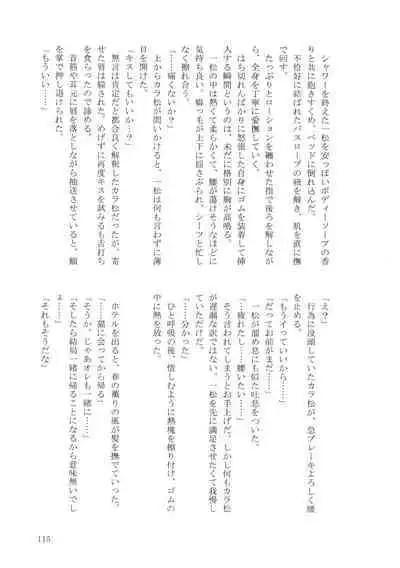 シャワーを終えた一松を安っぽいボディーソープの香
りと共に抱きすくめ、ベッドに倒れ込んだ。
不恰好に結ばれたバスローブの紐を解き、肌を直に撫
で回す。
たっぷりとローションを纏わせた指で後ろを解しなが
ら、全身を丁寧に愛撫していく。
はち切れんばかりに怒張した自身にゴムを装着して挿
入する瞬間というのは、未だに格別に胸が高鳴る。
一松の中は熱くて柔らかくて、腰が蕩けそうなほどに
気持ち良い。癖っ毛が上下に揺さぶられ、シーツと忙し
なく擦れ合う。
「……痛くないか?」
上からカラ松が問いかけると、一松は何も言わずに薄
目を開けた。
「キスしてもいいか…?」
無言は肯定だと都合良く解釈したカラ松だったが、寄
せた唇は躱された。めげずに再度キスを試みるも舌打ち
を食らったので諦める。
首筋や耳元に唇を落としながら抽送させていると、顔
を掌で押し退けられた。
「もういい……」
「え?」
行為に没頭していたカラ松が、急ブレーキよろしく腰
を止める。
「もうイっていいから……」
「だってお前がまだ……」
一松が溜め息にも似た吐息をついた。
「…疲れたし……腰いたい……」
そう言われてしまうとお手上げだ。しかし何もカラ松
が遅漏な訳ではない。一松を先に満足させたくて我慢し
ていただけだ。
「……分かった」
ひと呼吸の後、惜しむように熱塊を擦り付け、ゴムの
中に熱を放った。
ホテルを出ると、春の薫りの風が髪を撫でていった。
「……猫に会ってから帰る」
「そうか、じゃあオレも一緒に……」
「そしたら結局一緒に帰ることになるから意味無いでし
ょ……」
「それもそうだな」
115